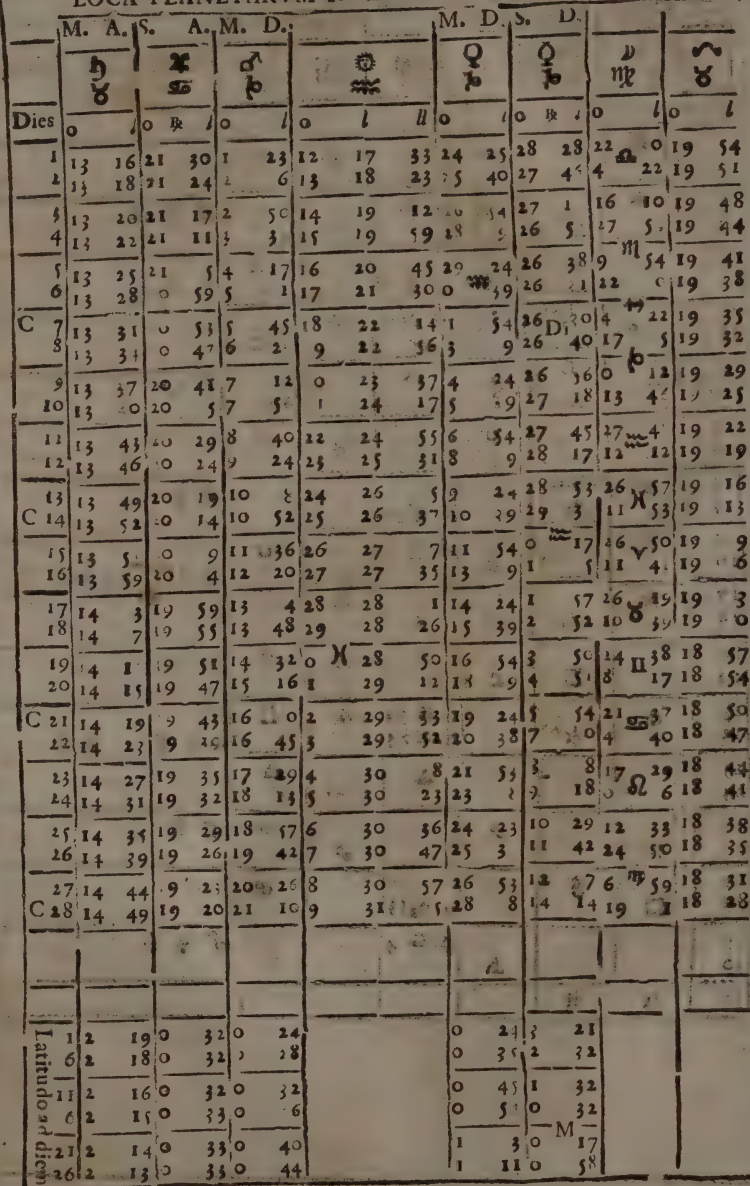 LOCA PLANETARVM
M. A. S. A. M. D. M. D. S. D.
♄ ♃ ♂ ☉ ♀ ☿ ☽ ☊
♉ ♋ ♑ ♒ ♑ ♑ ♍ ♉
Dies o l o ℞ l o l o l ll o l o ℞ l o l o l
1 13 16 21 30 1 23 12 17 33 24 25 28 28 22 ♎ 0 19 54
2 13 18 21 24 2 6 13 18 23 25 40 27 4 4 22 19 51
3 13 20 21 17 2 50 14 19 12 54 27 1 16 10 19 48
4 13 22 21 11 3 3 15 19 59 28 26 5 27 5 19 44
♏
5 13 25 21 5 4 17 16 20 45 29 24 26 38 9 54 19 41
6 13 28 0 59 5 1 17 21 30 0 ♒ 39 26 1 22 0 19 38
C 7 13 31 0 53 5 45 18 22 14 1 54 26 30 4 22 19 35
8 13 34 0 47 6 2 9 22 56 3 9 26 D 40 17 5 19 32
♑
9 13 37 20 41 7 12 0 23 37 4 24 26 56 0 12 19 29
10 13 0 20 5 7 5 1 24 17 5 9 27 18 13 4 19 25
11 13 43 20 29 8 40 22 24 55 6 54 27 45 27 ♒ 4 19 22
12 13 46 0 24 9 24 23 25 31 8 9 28 17 12 12 19 19
13 13 49 20 19 10 8 24 26 5 9 24 28 53 26 ♓ 57 19 16
C 14 13 52 0 14 10 52 25 26 37 10 39 29 3 11 53 19 13
15 13 5 0 9 11 36 26 27 7 11 54 0 ♒ 17 26 ♈ 50 19 9
16 13 59 20 4 12 20 27 27 35 13 9 1 5 11 4 19 6
17 14 3 19 59 13 4 28 28 1 14 24 1 57 26 ♉ 19 19 3
18 14 7 19 55 13 48 29 28 26 15 39 2 52 10 39 19 0
19 14 1 19 51 14 32 0 ♓ 28 50 16 54 3 50 24 ♊ 38 18 57
20 14 15 19 47 15 16 1 29 12 18 9 4 5 8 17 18 54
C 21 14 19 9 43 16 0 2 29 33 19 24 5 54 21 ♋ 37 18 50
22 14 23 9 39 16 45 3 29 52 20 38 7 0 4 40 18 47
23 14 27 19 35 17 29 4 30 8 21 53 8 17 29 18 44
24 14 31 19 32 18 13 5 30 23 23 8 9 18 0 ♌ 6 18 41
25 14 35 19 29 18 57 6 30 36 24 23 10 29 12 33 18 38
26 14 39 19 26 19 42 7 30 47 25 3 11 42 24 50 18 35
27 14 44 9 23 20 26 8 30 57 26 53 12 7 6 ♍ 59 18 31
C 28 14 49 19 20 21 10 9 31 5 28 8 14 14 19 1 18 28
Latitudo ad diem
1 2 19 0 32 0 24 0 24 3 21
6 2 18 0 32 28 0 35 2 32
11 2 16 0 32 0 32 0 45 1 32
6 2 15 0 33 0 6 0 5 0 32
M
21 2 14 0 33 0 40 1 3 0 17
26 2 13 0 33 0 44 1 11 0 58